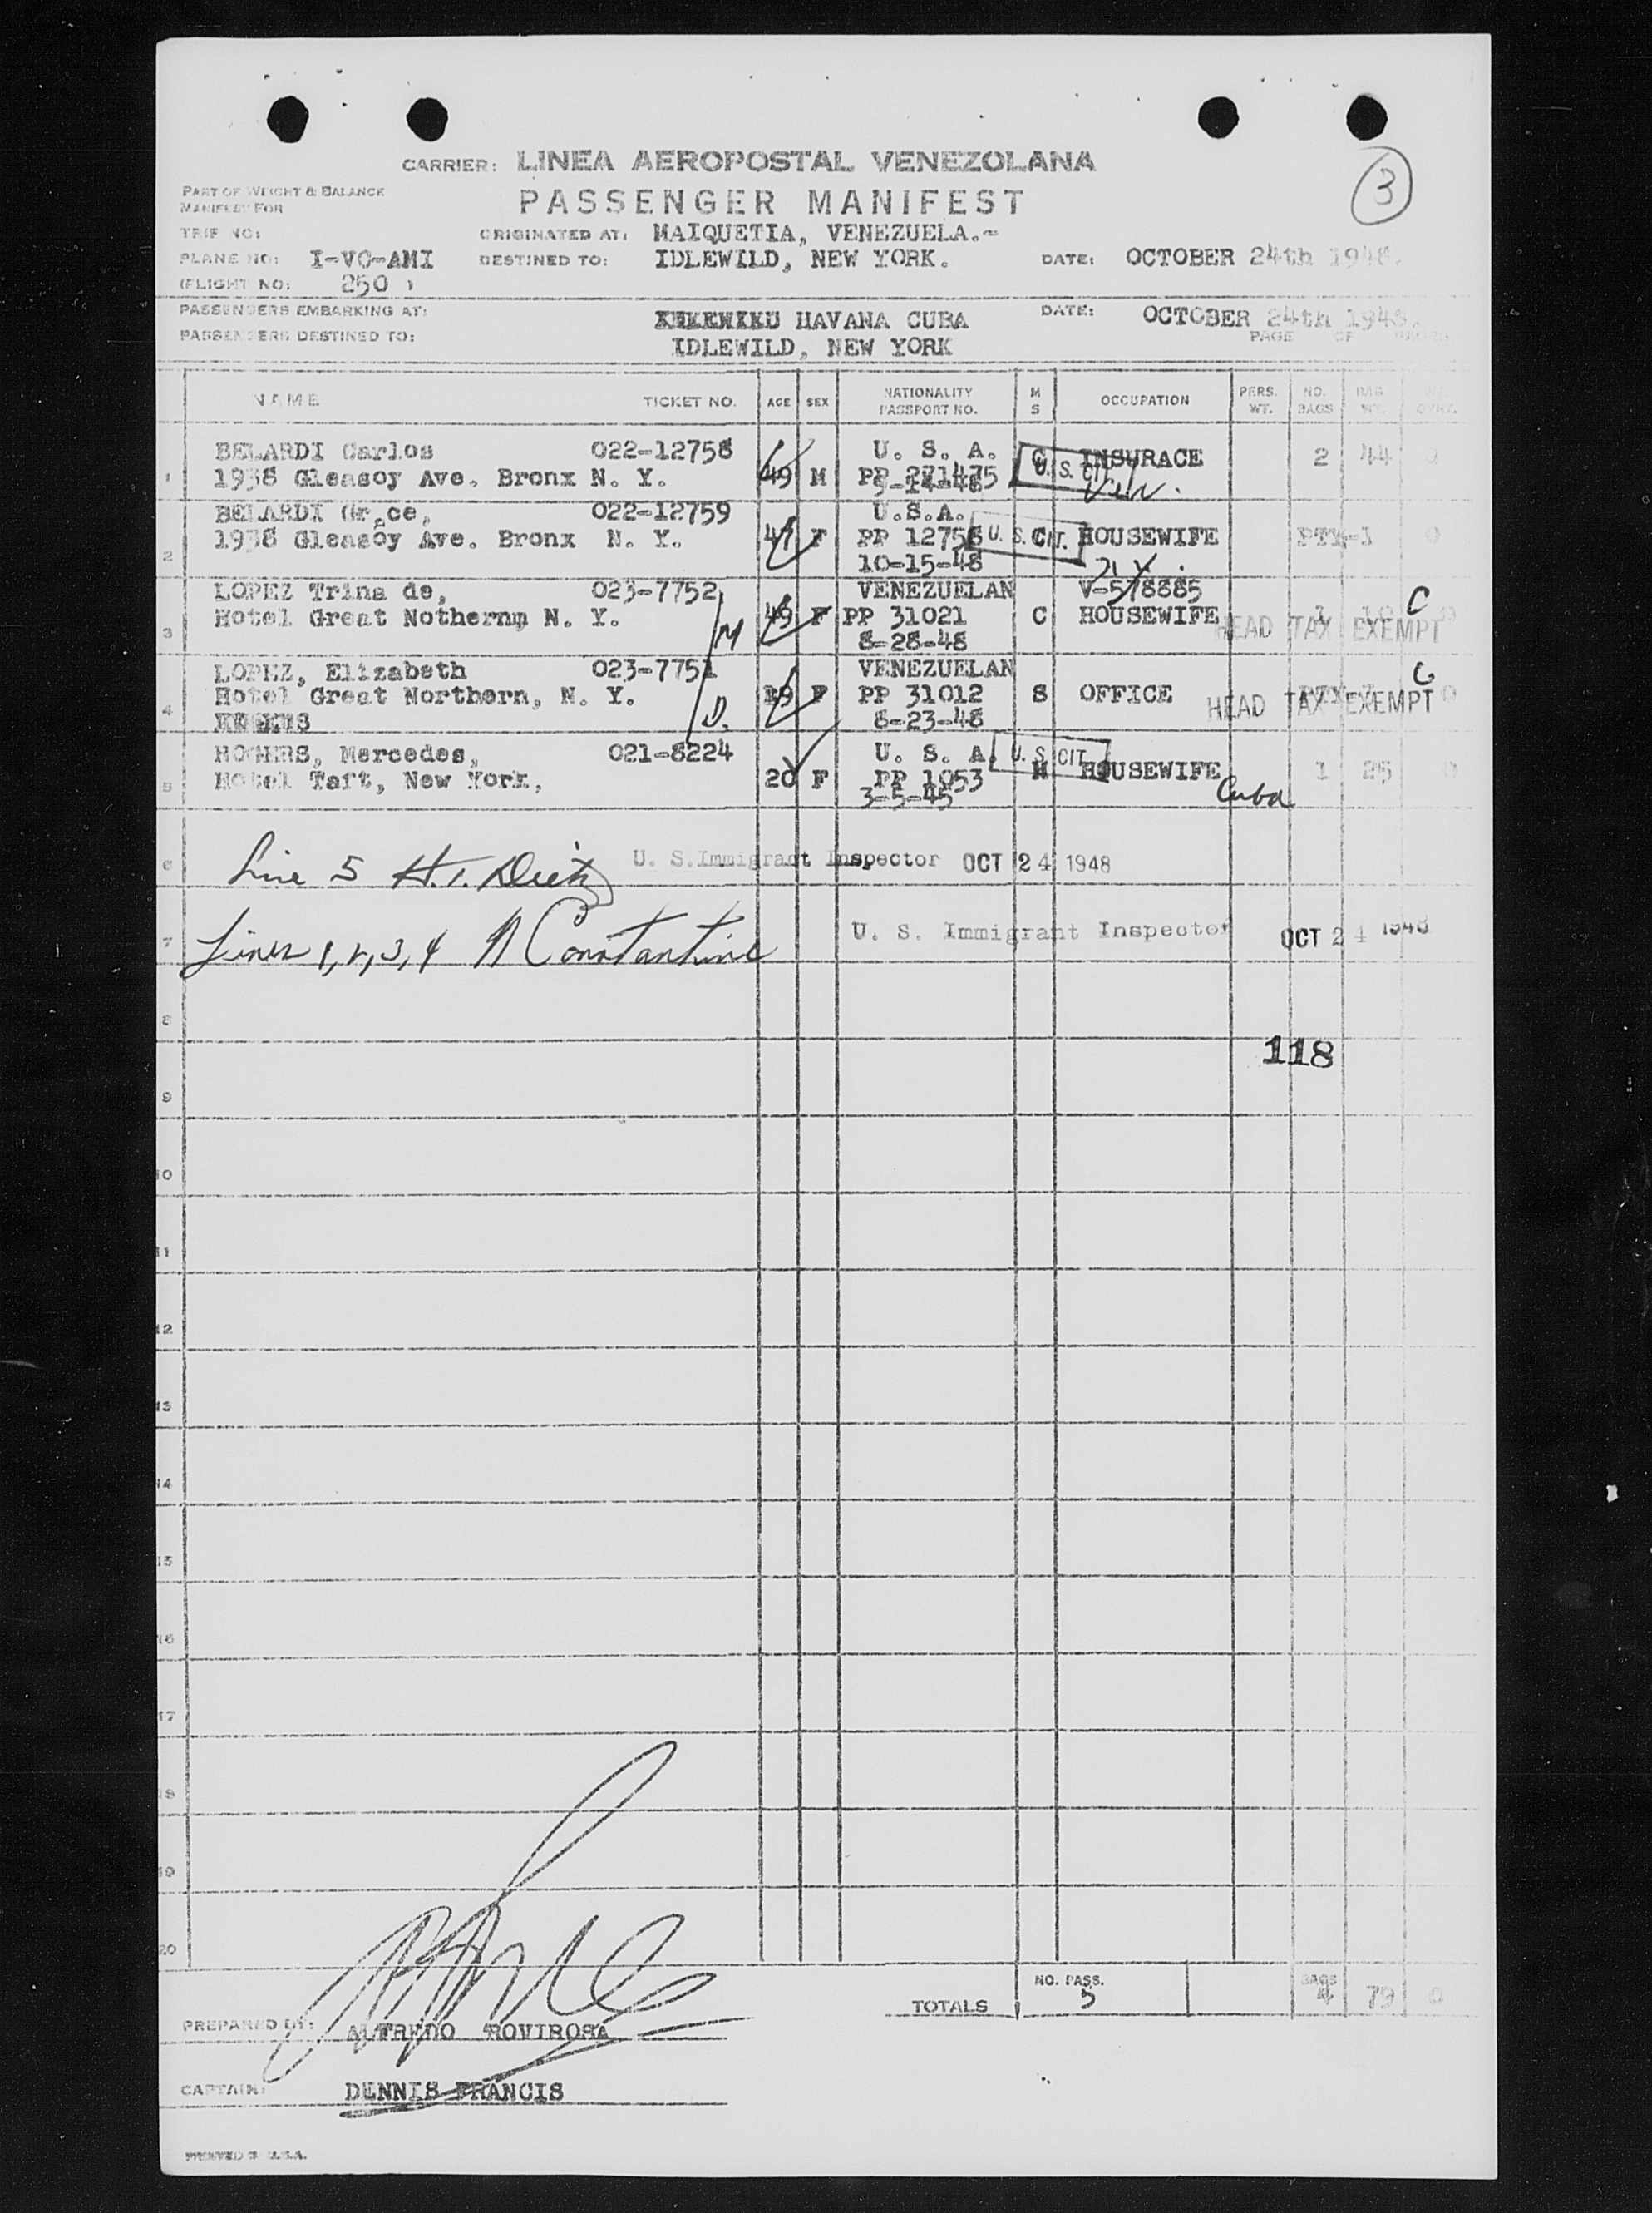 3
CARRIER: LINEA AEROPOSTAL VENEZOLANA
PART OF WEIGHT & BALANCE
MANIFEST FOR
PASSENGER MANIFEST
TRIP NO: ORIGINATED AT: MAIQUETIA, VENEZUELA.-
PLANE NO: I-VC-AMI DESTINED TO: IDLEWILD, NEW YORK. DATE: OCTOBER 24th 1948.
(FLIGHT NO: 250 )
PASSENGERS EMBARKING AT: HAVANA CUBA DATE: OCTOBER 24th 1948.
PASSENGERS DESTINED TO: IDLEWILD, NEW YORK PAGE OF PAGES
NAME TICKET NO. AGE SEX NATIONALITY PASSPORT NO. M S OCCUPATION PERS. WT. NO. BAGS BAG WT.
BELARDI Carlos 022-12758 U. S. A. C INSURACE 2 44 0
1 1938 Gleasoy Ave. Bronx N. Y. 49 M PP 271475 U. S. CIT. Ven.
BELARDI Grace, 022-12759 U.S.A.
2 1938 Gleasoy Ave. Bronx N. Y. 47 F PP 12756 U. S. CIT. C HOUSEWIFE PTY-1 0
10-15-48
LOPEZ Trina de, 023-7752 VENEZUELAN V-578885
3 Hotel Great Nothernp N. Y. M 49 F PP 31021 C HOUSEWIFE 1 10 C
HEAD TAX EXEMPT
8-28-48
LOPEZ, Elizabeth 023-7751 VENEZUELAN C
4 Hotel Great Northern, N. Y. D. 19 F PP 31012 S OFFICE HEAD TAX EXEMPT 0
8-23-48
ROGERS, Mercedes, 021-8224 U. S. A. U. S. CIT.
5 Hotel Taft, New York, 20 F PP 1053 M HOUSEWIFE 1 25 0
3-5-45 Cuba
6 Line 5 H.T. Dietz U. S. Immigrant Inspector OCT 24 1948
7 Lines 1, 2, 3, 4 N Constantine U. S. Immigrant Inspector OCT 24 1948
8
118
9
10
11
12
13
14
15
16
17
18
19
20
TOTALS NO. PASS. 5 BAGS 4 79 0
PREPARED BY: ALFREDO ROVIROSA
CAPTAIN: DENNIS FRANCIS
PRINTED IN U.S.A.